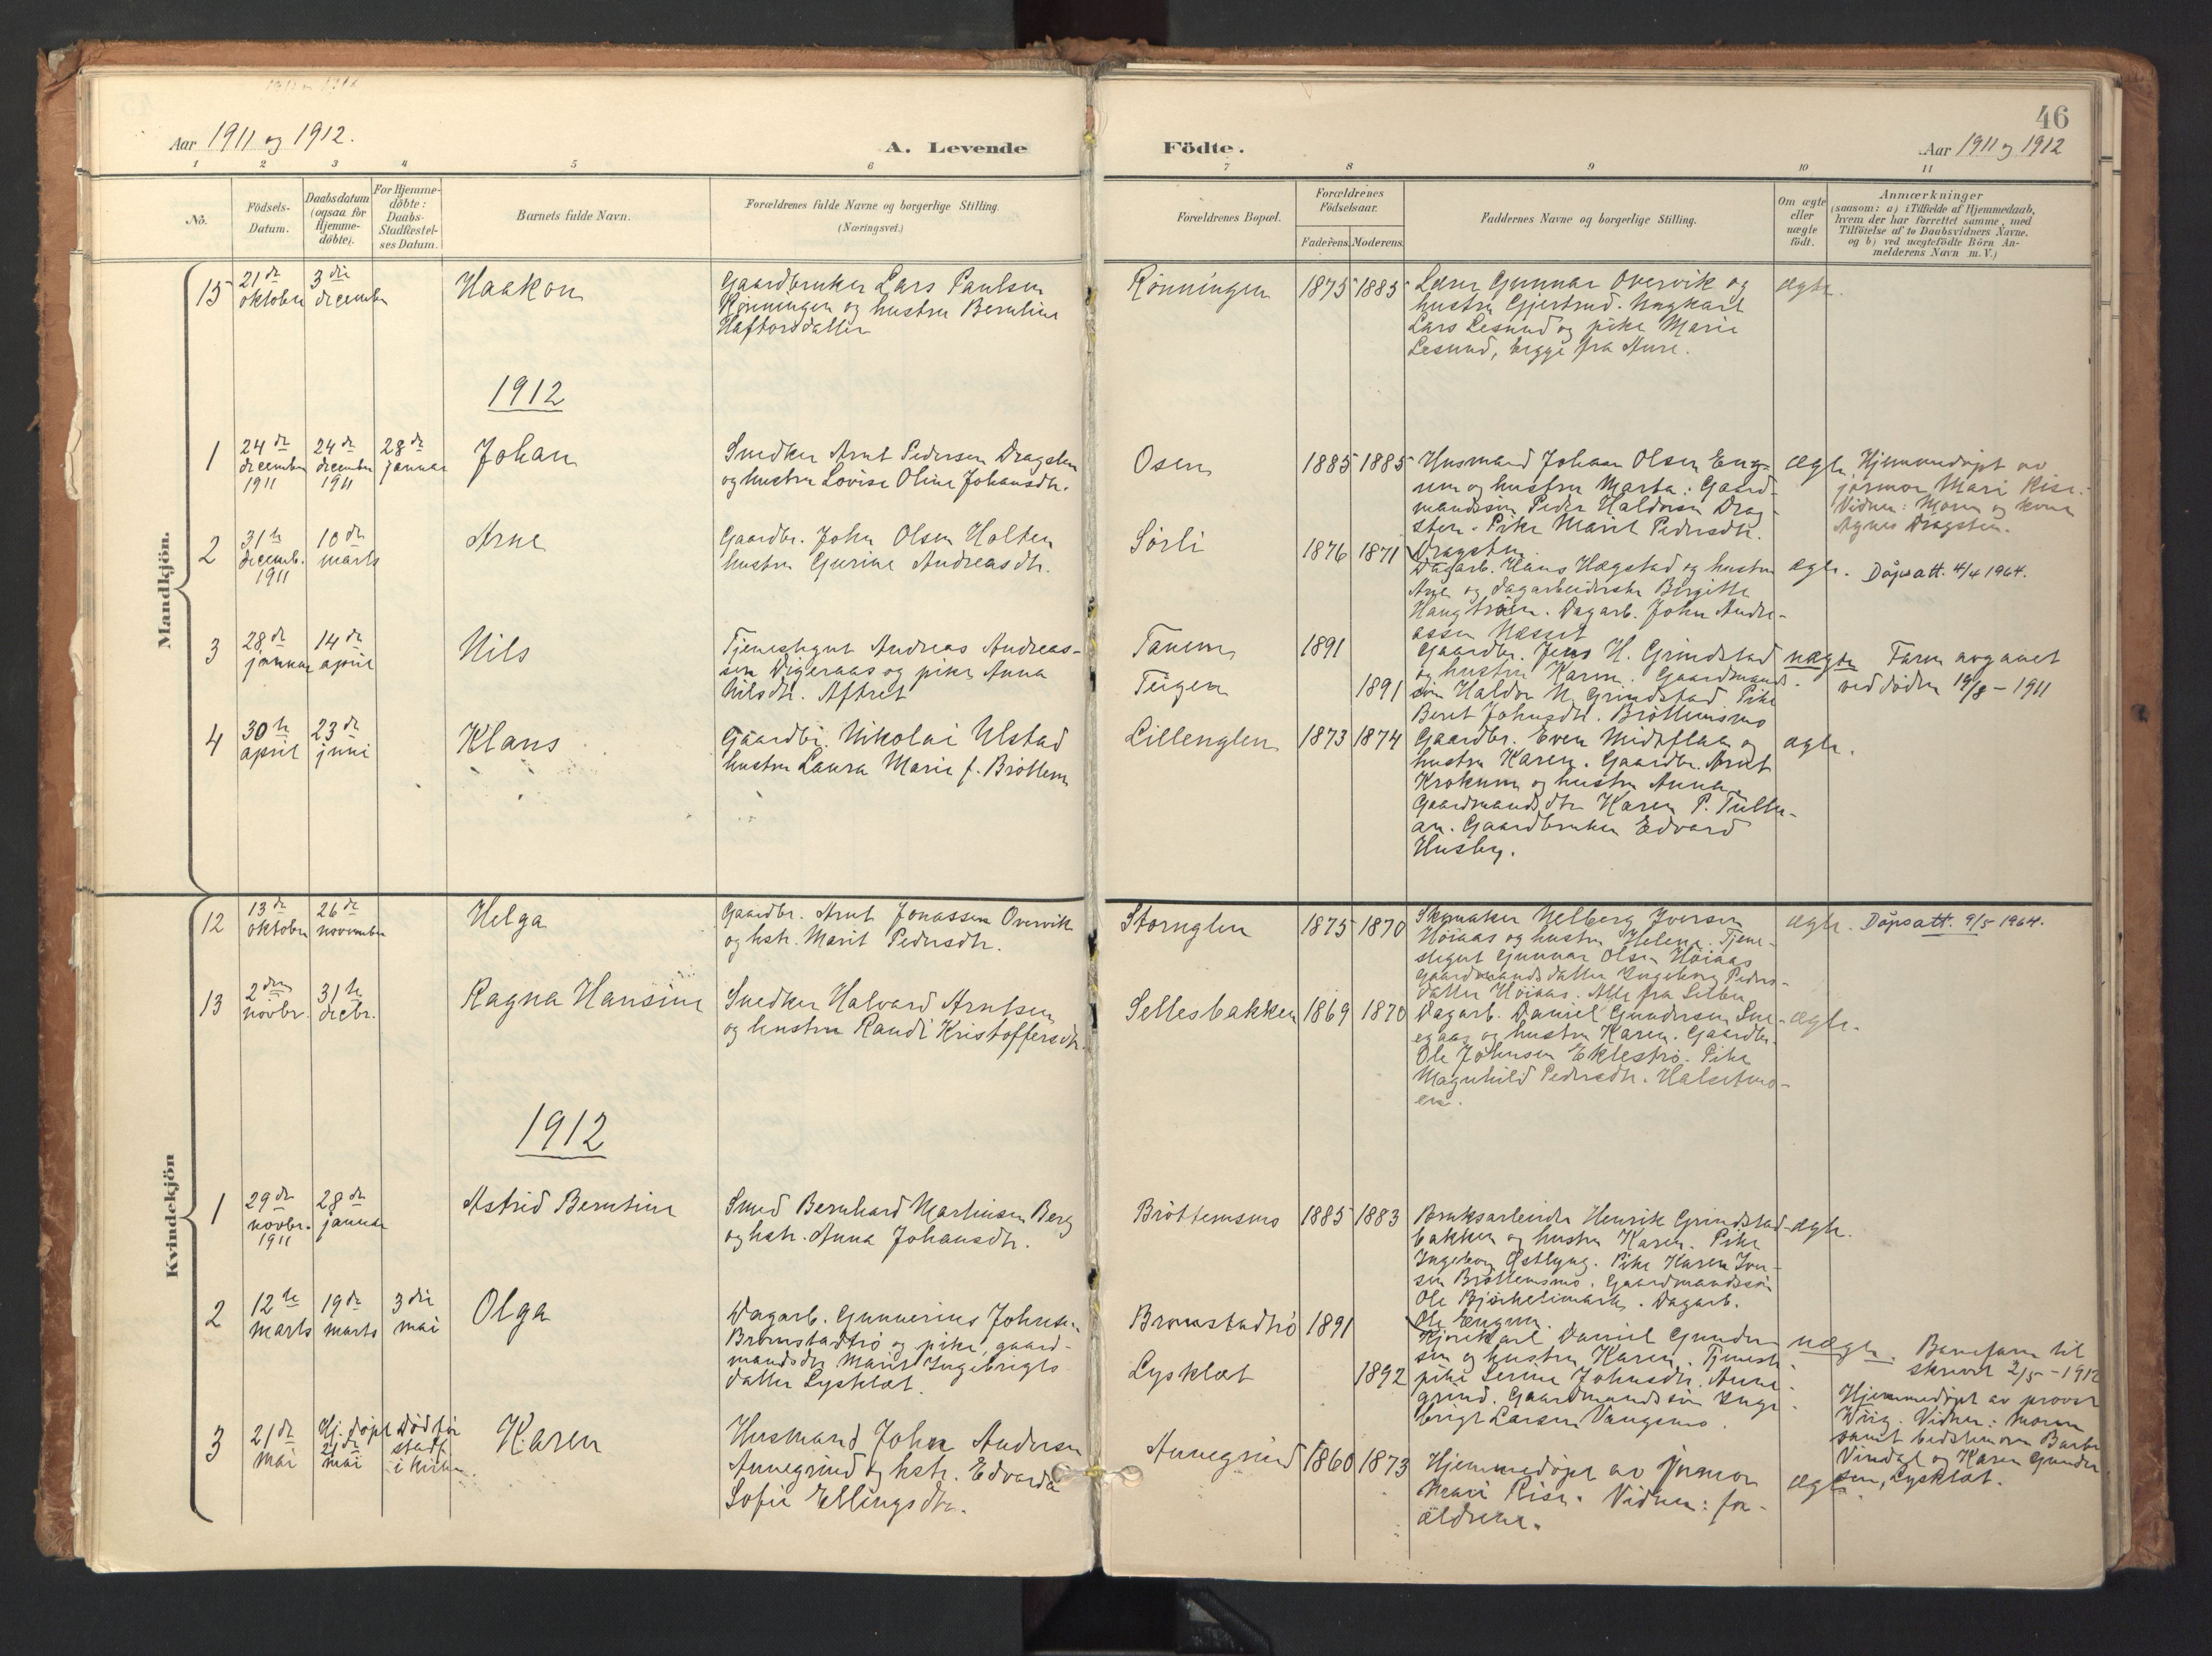 46
Aar 1911 og 1912.
A. Levende Födte.
Aar 1911 og 1912
1 2 3 4 5 6 7 8 9 10 11
No.
Födsels-
Datum.
Daabsdatum
(ogsaa for
Hjemme-
döbte).
For Hjemme-
döbte:
Daabs-
Stadfæstel-
ses Datum.
Barnets fulde Navn.
Forældrenes fulde Navne og borgerlige Stilling.
(Næringsvei.)
Forældrenes Bopæl.
Forældrenes
Födselsaar.
Faderens. Moderens.
Faddernes Navne og borgerlige Stilling.
Om ægte
eller
uægte
födt.
Anmærkninger
(saasom: a) i Tilfælde af Hjemmedaab,
hvem der har forrettet samme, med
Tilföielse af to Daabsvidners Navne.
og b) ved uægtefödte Börn An-
melderens Navn m. V.)
Mandkjön.
15
21de
oktober
3die
december
Haakon
Gaardbruker Lars Paulsen
Rönningen og hustru Berntine
Haftorsdatter
Rönningen
1875 1885
Lærer Gunnar Overvik og
hustru Gjertrud. Ungkarl
Lars Lesund og pike Marie
Lesund, begge fra Aure.
ægte.
1912
1
24de
december
1911
24de
december
1911
28de
januar
Johan
Snedker Arnt Pedersen Dragsten
og hustru Lovise Oline Johansdtr.
Osen
1885 1885
Husmand Johan Olsen Eng-
um og hustru Marta. Gaard-
mandssøn Peder Haldorsen Drag-
sten. Pike Marit Pedersdtr.
Dragsten.
ægte.
Hjemmedøpt av
jormor Mari Rise.
Vidner: Moren og kone
Agnes Dragsten.
2
31te
decemb.
1911
10de
marts
Arne
Gaardbr. John Olsen Holten
hustru Gurine Andreasdtr.
Sörli
1876 1871
Dagarb. Hans Hægstad og hustru
Ane og dagarbeiderske Bergitte
Haugtröen. Dagarb. John Andre-
assen Næsset
ægte.
Dåpsatt. 4/4 1964.
3
28de
januar
14de
april
Nils
Tjenestegut Andreas Andreas-
sen Digeraas og pike Anna
Nilsdtr. Aftret
Tanem
Teigen
1891
1891
Gaardbr. Jens H. Grindstad
og hustru Karen. Gaardmands-
søn Haldor N. Grindstad Pike
Beret Johnsdtr. Bröttemsmo
uægte
Faren avgaaet
ved døden 19/8 - 1911
4
30te
april
23de
juni
Klaus
Gaardbr. Nikolai Ulstad
hustru Laura Marie f. Bröttem
Lilleuglen
1873 1874
Gaardbr. Even Midtflaa og
hustru Karen. Gaardbr. Arnt
Krokum og hustru Anna.
Gaardmandsdtr Karen P. Tuller-
an. Gaardbruker Edvard
Husby.
ægte.
Kvindekjön
12
13de
oktober
26de
november
Helga
Gaardbr. Arnt Jonassen Overvik
og hstr. Marit Pedersdtr.
Storuglen
1875 1870
Skomaker Helberg Iversen
Höiaas og hustru Helene. Tjene-
stegut Gunnar Olsen Höiaas
Gaardmandsdatter Ingeborg Peders-
datter Höiaas. Alle fra Selbu
ægte.
Dåpsatt. 9/5 1964.
13
2den
novbr.
31te
decbr.
Ragna Hansine
Snedker Halvard Arntsen
og hustru Randi Kristoffersdtr.
Sellesbakken
1869 1870
Dagarb. Daniel Gundersen Sne-
egaas og hustru Karen. Gaardbr.
Ole Johnsen Ekleströ. Pike
Magnhild Pedersdtr. Halsetmo-
en.
ægte.
1912
1
29de
novbr.
1911
28de
januar
Astrid Berntine
Smed Bernhard Martinsen Berg
og hstr. Anna Johansdtr.
Bröttemsmo
1885 1883
Bruksarbeider Henrik Grindstad-
bakken og hustru Karen. Pike
Ingeborg Østlyng. Pike Karen Iver-
sen Bröttemsmo. Gaardmandssön
Ole Björkelimark. Dagarb.
Ole Engum.
ægte.
2
12te
marts
19de
marts
3die
mai
Olga
Dagarb. Gunnerius Johnsen
Bromstadtrö og pike, gaard-
mandsdtr Marit Ingebrigts-
datter Lysklæt.
Bromstadtrö
Lysklæt
1891
1892
Kjörekarl Daniel Gunder-
sen og hustru Karen. Tjeneste-
pike Serine Johnsdtr. Anne-
grind. Gaardmandssön Inge-
brigt Larsen Vangsmo.
uægte.
Barnefaren til-
skrevet 2/5 - 1912
Hjemmedøpt av provst
Wiig. Vidner: Moren
samt bedstemoren Barbr
Vindal og Karen Gunder
sen, Lysklæt.
3
21de
mai
Hj. døpt
21de
mai
Død før
stadf.
i kirken.
Karen
Husmand John Andersen
Annegrind og hstr. Edvarda
Sofie Ellingsdtr.
Annegrind
1860 1873
Hjemmedøpt av jormor
Mari Risen. Vidner: for-
ældrene.
ægte